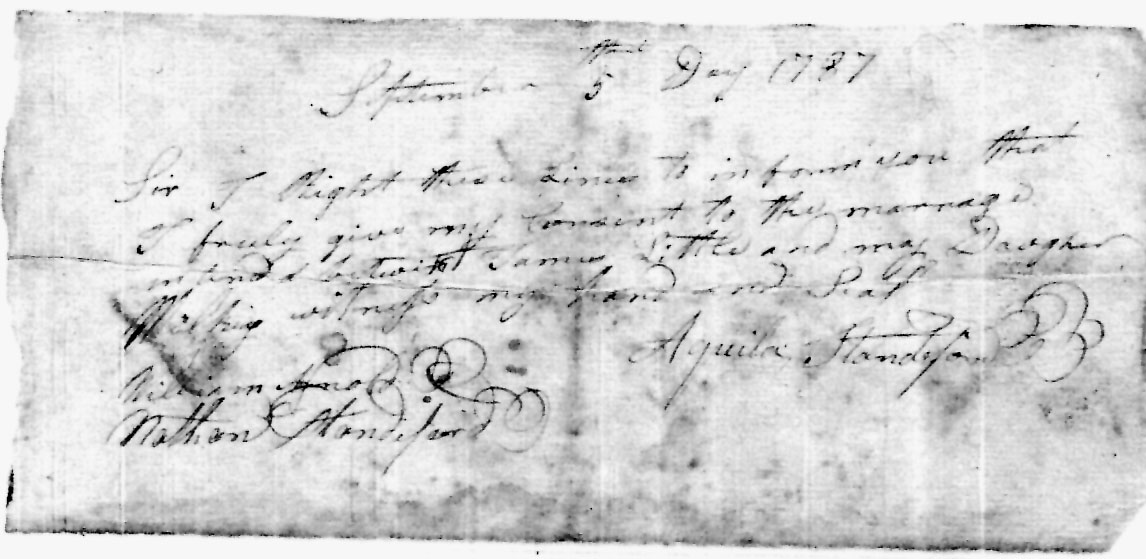 September 5th Day 1787
Sir I Right these Lines to inform you that
I freely give my Consent to they marriage
intend betwixt James Little and my Daugher
witness my hand and Seal
Aquila Standiford
William
Nathan Standiford